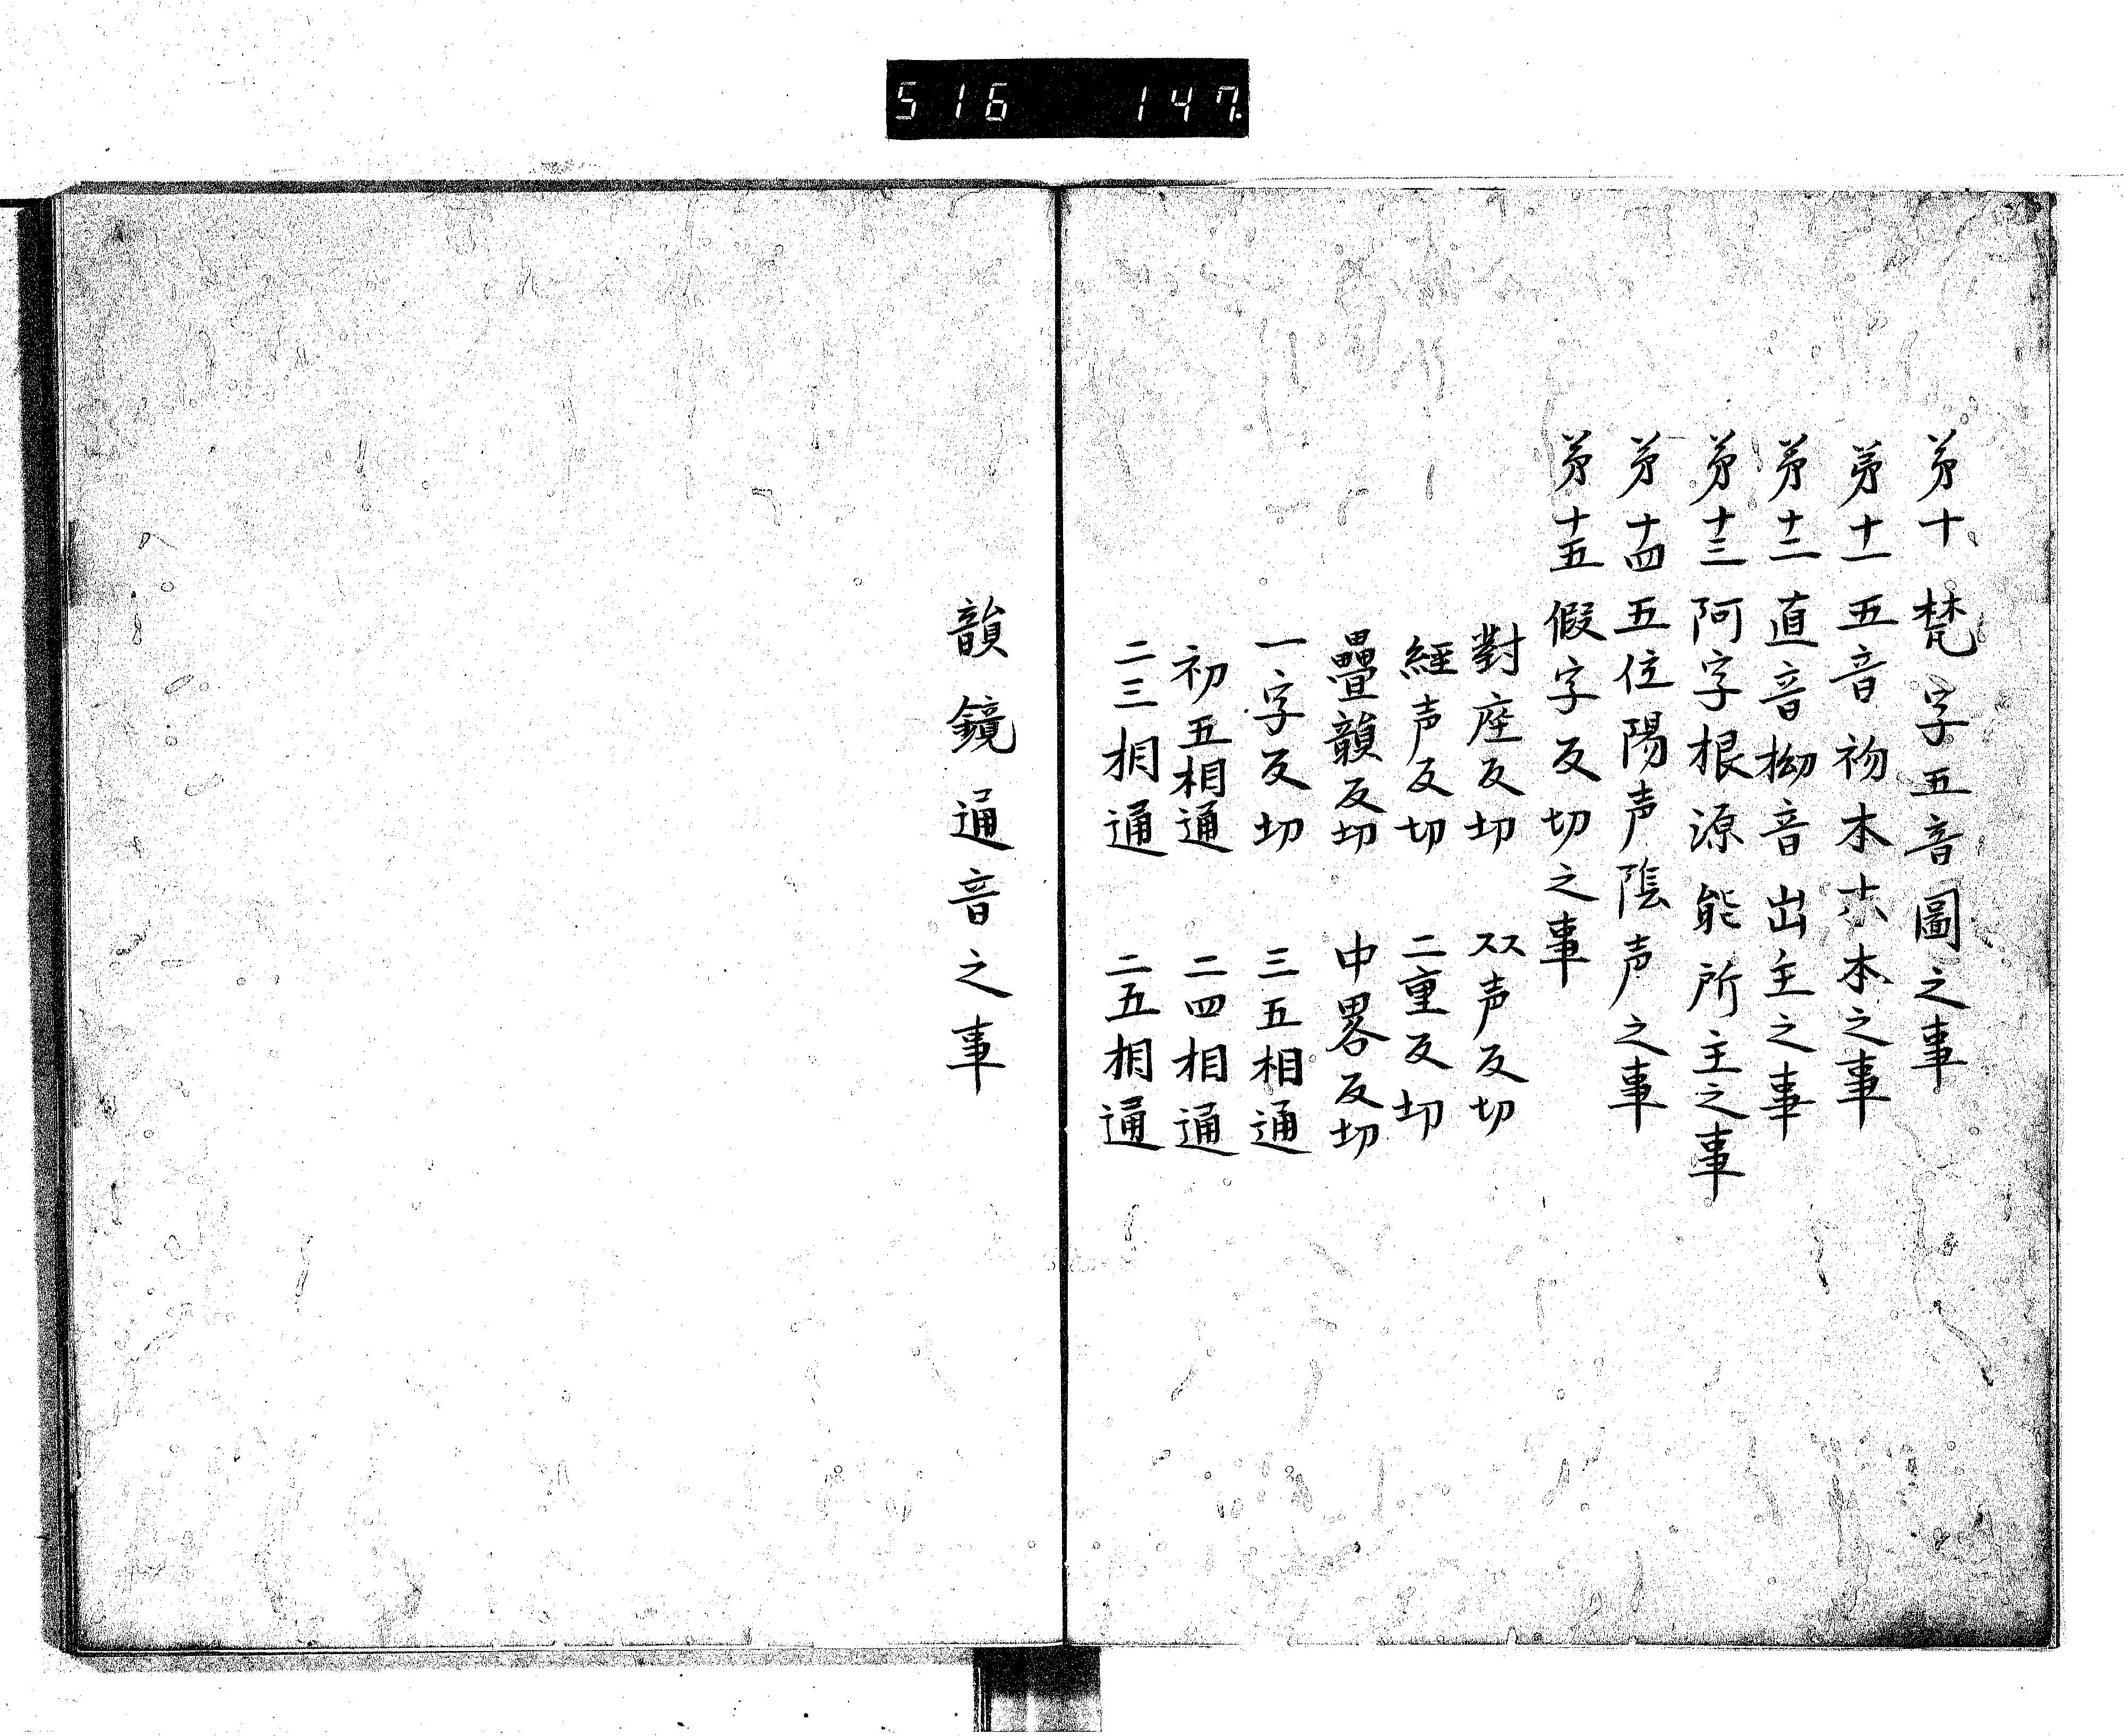 516 147.
第十 梵字五音圖之事
第十一 五音初本末本之事
第十二 直音拗音出生之事
第十三 阿字根源能所生之事
第十四 五位陽声陰声之事
第十五 假字反切之事
對座反切 双声反切
經声反切 二重反切
疊韻反切 中畧反切
一字反切 三五相通
初五相通 二四相通
二三相通 二五相通
韻鏡通音之事